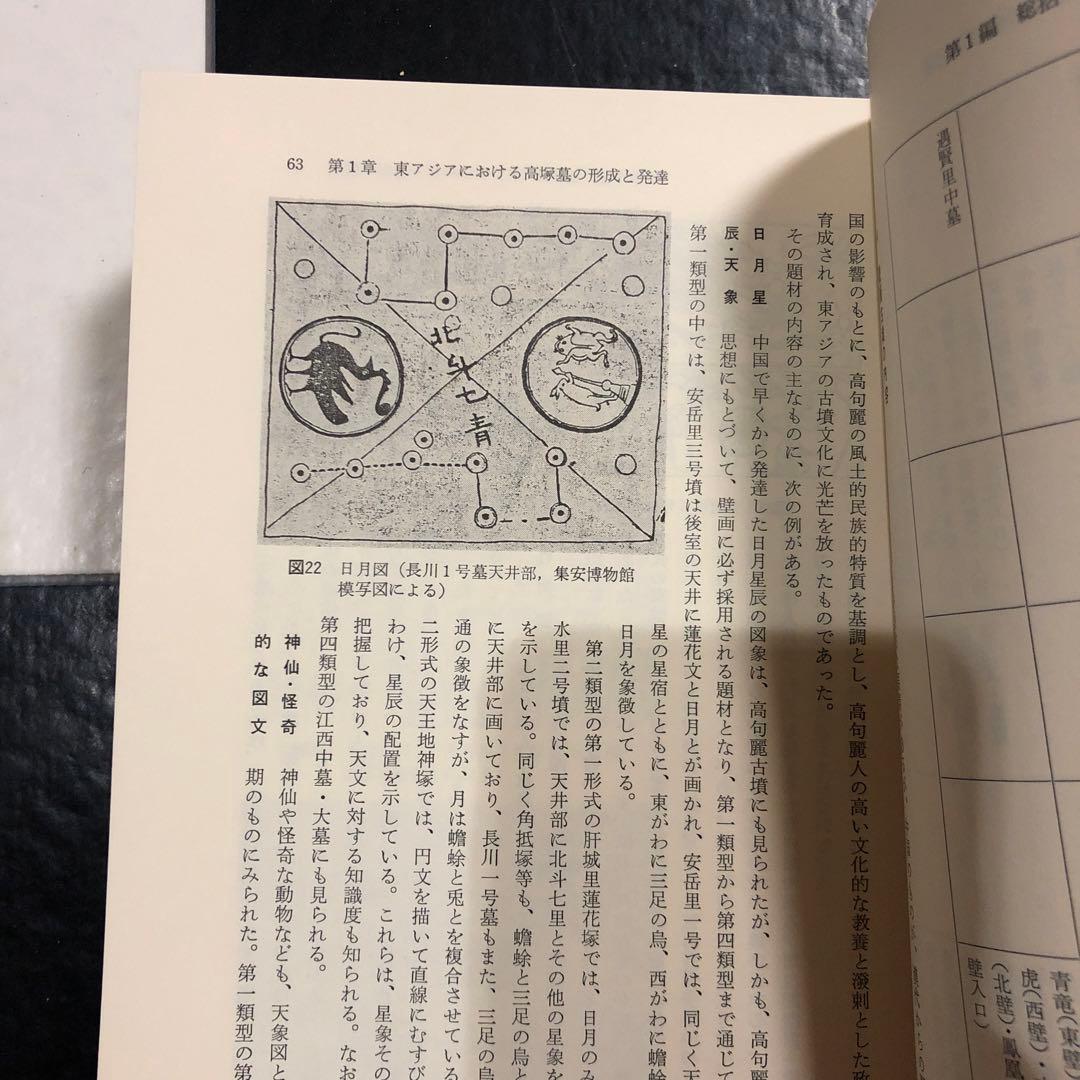 第1編 総括
遇賢里中墓
青竜(東壁)
虎(西壁)・
(北壁)・鳳凰
壁入口)
63 第1章 東アジアにおける高塚墓の形成と発達
国の影響のもとに、高句麗の風土的民族的特質を基調とし、高句麗人の高い文化的な教養と潑剌とした政
育成され、東アジアの古墳文化に光芒を放ったものであった。
その題材の内容の主なものに、次の例がある。
日月星
辰・天象
中国で早くから発達した日月星辰の図象は、高句麗古墳にも見られたが、しかも、高句麗
思想にもとづいて、壁画に必ず採用される題材となり、第一類型から第四類型まで通じて
第一類型の中では、安岳里三号墳は後室の天井に蓮花文と日月とが画かれ、安岳里一号では、同じく天
星の星宿とともに、東がわに三足の烏、西がわに蟾蜍
日月を象徴している。
第二類型の第一形式の肝城里蓮花塚では、日月のみ
水里二号墳では、天井部に北斗七里とその他の星象を
を示している。同じく角抵塚等も、蟾蜍と三足の烏と
に天井部に画いており、長川一号墓もまた、三足の烏
通の象徴をなすが、月は蟾蜍と兎とを複合させている
二形式の天王地神塚では、円文を描いて直線にむすび
わけ、星辰の配置を示している。これらは、星象その
把握しており、天文に対する知識度も知られる。なお
第四類型の江西中墓・大墓にも見られる。
神仙・怪奇
的な図文
神仙や怪奇な動物なども、天象図と
期のものにみられた。第一類型の第
北斗七青
図22 日月図(長川1号墓天井部, 集安博物館
模写図による)